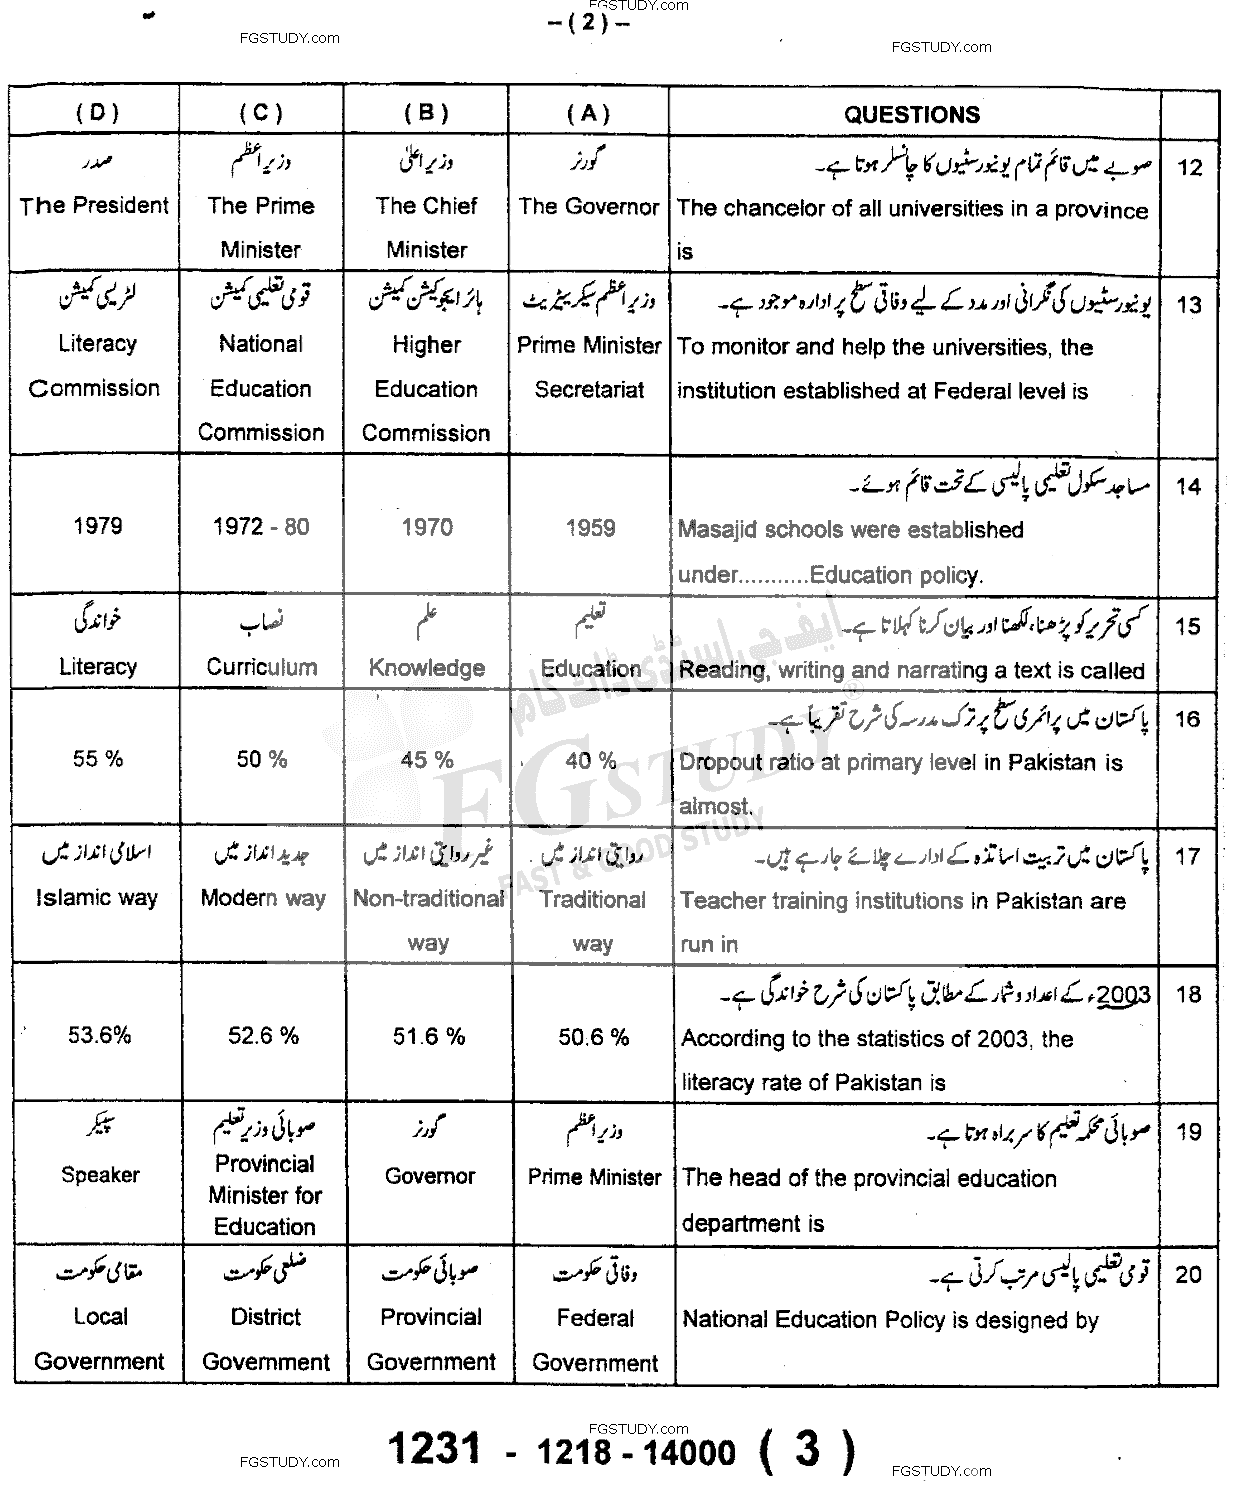 FGSTUDY.com
-(2)-
FGSTUDY.com
FGSTUDY.com
(D) (C) (B) (A) QUESTIONS
12 صوبے میں قائم تمام یونیورسٹیوں کا چانسلر ہوتا ہے۔
گورنر وزیراعلیٰ وزیراعظم صدر
The chancelor of all universities in a province
is
The Governor
The Chief
Minister
The Prime
Minister
The President
13 یونیورسٹیوں کی نگرانی اور مدد کے لیے وفاقی سطح پر ادارہ موجود ہے۔
وزیراعظم سیکریٹریٹ ہائر ایجوکیشن کمیشن قومی تعلیمی کمیشن لٹریسی کمیشن
To monitor and help the universities, the
institution established at Federal level is
Prime Minister
Secretariat
Higher
Education
Commission
National
Education
Commission
Literacy
Commission
14 مساجد سکول تعلیمی پالیسی کے تحت قائم ہوئے۔
Masajid schools were established
under...........Education policy.
1959
1970
1972 - 80
1979
15 کسی تحریر کو پڑھنا، لکھنا اور بیان کرنا کہلاتا ہے۔
تعلیم علم نصاب خواندگی
Reading, writing and narrating a text is called
Education
Knowledge
Curriculum
Literacy
16 پاکستان میں پرائمری سطح پر ترک مدرسہ کی شرح تقریباً ہے۔
Dropout ratio at primary level in Pakistan is
almost.
40 %
45 %
50 %
55 %
17 پاکستان میں تربیت اساتذہ کے ادارے چلائے جارہے ہیں۔
روایتی انداز میں غیر روایتی انداز میں جدید انداز میں اسلامی انداز میں
Teacher training institutions in Pakistan are
run in
Traditional
way
Non-traditional
way
Modern way
Islamic way
18 2003ء کے اعداد و شمار کے مطابق پاکستان کی شرح خواندگی ہے۔
According to the statistics of 2003, the
literacy rate of Pakistan is
50.6 %
51.6 %
52.6 %
53.6%
19 صوبائی محکمہ تعلیم کا سربراہ ہوتا ہے۔
وزیراعظم گورنر صوبائی وزیر تعلیم سپیکر
The head of the provincial education
department is
Prime Minister
Governor
Provincial
Minister for
Education
Speaker
20 قومی تعلیمی پالیسی مرتب کرتی ہے۔
وفاقی حکومت صوبائی حکومت ضلعی حکومت مقامی حکومت
National Education Policy is designed by
Federal
Government
Provincial
Government
District
Government
Local
Government
ایف جی اسٹڈی ڈاٹ کام
FGSTUDY ®
FAST & GOOD STUDY
1231 - 1218 - 14000 ( 3 )
FGSTUDY.com
FGSTUDY.com
FGSTUDY.com